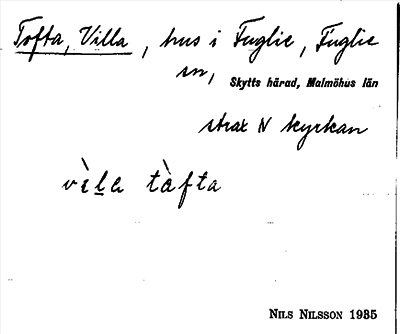 Tofta, Villa, hus i Fuglie, Fuglie
sn, Skytts härad, Malmöhus län
strax N kyrkan
vìla tàfta
NILS NILSSON 1935